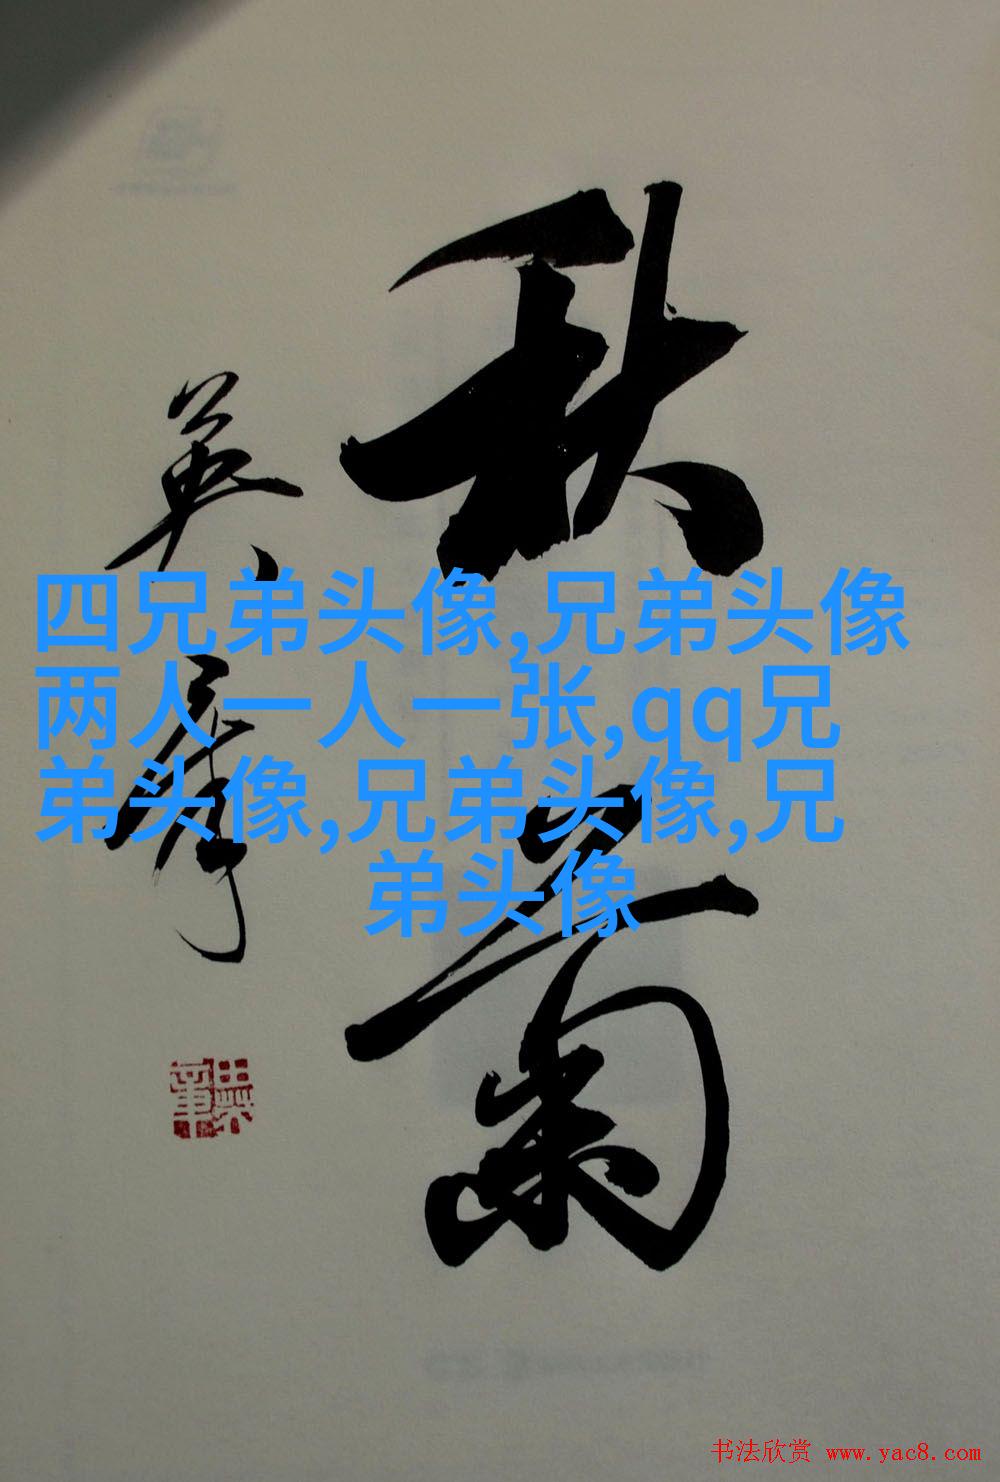 秋菊
英章
四兄弟头像,兄弟头像
两人一人一张,qq兄
弟头像,兄弟头像,兄
弟头像
书法欣赏 www.yac8.com